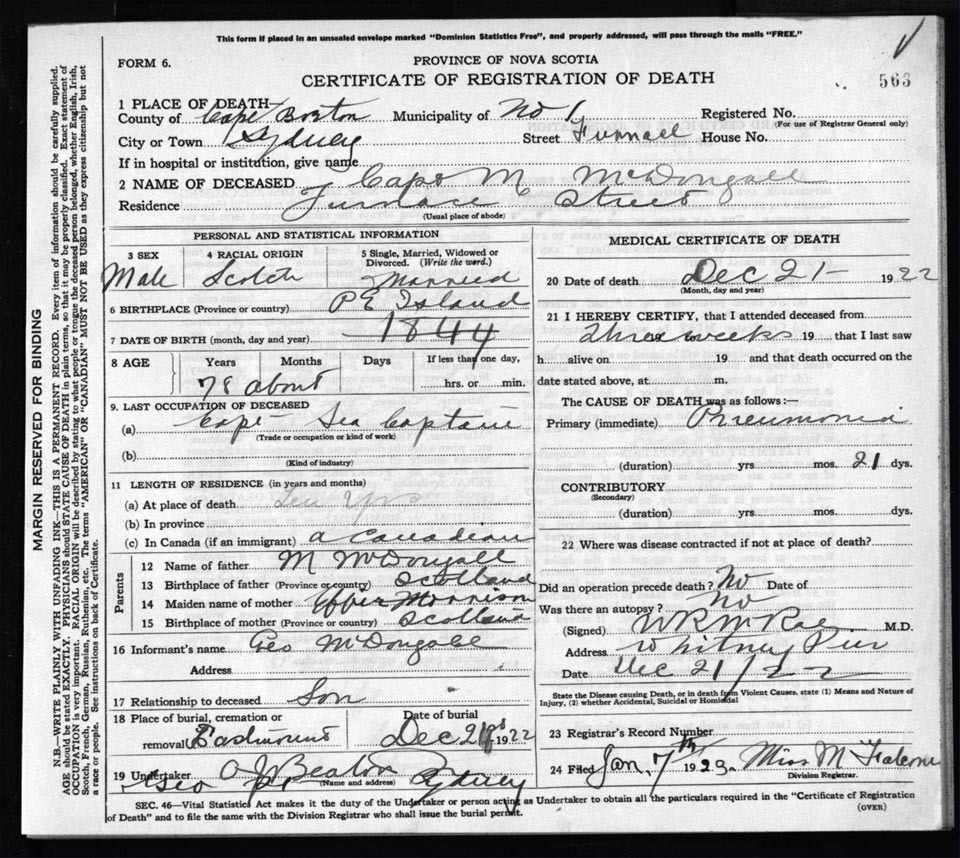 This form if placed in an unsealed envelope marked "Dominion Statistics Free", and properly addressed, will pass through the mails "FREE."
FORM 6.
PROVINCE OF NOVA SCOTIA
563
CERTIFICATE OF REGISTRATION OF DEATH
1 PLACE OF DEATH
County of Cape Breton Municipality of No 1 Registered No.
(For use of Registrar General only)
City or Town Sydney Street Furnace House No.
If in hospital or institution, give name
2 NAME OF DECEASED Capt M McDougall
Residence Furnace Street
(Usual place of abode)
PERSONAL AND STATISTICAL INFORMATION
3 SEX 4 RACIAL ORIGIN 5 Single, Married, Widowed or Divorced. (Write the word.)
Male Scotch Married
6 BIRTHPLACE (Province or country) P E Island
7 DATE OF BIRTH (month, day and year) 1844
8 AGE Years Months Days If less than one day,
78 about hrs. or min.
9. LAST OCCUPATION OF DECEASED
(a) Capt Sea Captain
(Trade or occupation or kind of work)
(b)
(Kind of industry)
11 LENGTH OF RESIDENCE (in years and months)
(a) At place of death Ten Yrs
(b) In province
(c) In Canada (if an immigrant) a Canadian
Parents
12 Name of father M McDougall
13 Birthplace of father (Province or country) Scotland
14 Maiden name of mother Effie Morrison
15 Birthplace of mother (Province or country) Scotland
16 Informant's name Geo McDougall
Address
17 Relationship to deceased Son
18 Place of burial, cremation or Date of burial
removal Eastmount Dec 1922
19 Undertaker A J Beaton
(Name and address)
Sydney
MEDICAL CERTIFICATE OF DEATH
20 Date of death Dec 21 1922
(Month, day and year)
21 I HEREBY CERTIFY, that I attended deceased from
Three weeks 19 that I last saw
h alive on 19 and that death occurred on the
date stated above, at m.
The CAUSE OF DEATH was as follows:—
Primary (immediate) Pneumonia
(duration) yrs mos. 21 dys.
CONTRIBUTORY
(Secondary)
(duration) yrs. mos. dys.
22 Where was disease contracted if not at place of death?
Did an operation precede death? No Date of
Was there an autopsy? No
(Signed) W R McRae M.D.
Address Whitney Pier
Date Dec 21/22
State the Disease causing Death, or in death from Violent Causes, state (1) Means and Nature of
Injury, (2) whether Accidental, Suicidal or Homicidal
23 Registrar's Record Number
24 Filed Jan. 7th 1923 Miss M
Division Registrar.
SEC. 46—Vital Statistics Act makes it the duty of the Undertaker or person acting as Undertaker to obtain all the particulars required in the "Certificate of Registration
of Death" and to file the same with the Division Registrar who shall issue the burial permit.
(OVER)
MARGIN RESERVED FOR BINDING
N.B.—WRITE PLAINLY WITH UNFADING INK—THIS IS A PERMANENT RECORD. Every item of information should be carefully supplied.
AGE should be stated EXACTLY. PHYSICIANS should STATE CAUSE OF DEATH in plain terms, so that it may be properly classified. Exact statement of
OCCUPATION is very important. RACIAL ORIGIN will be described by stating to what people or tongue the deceased person belonged, whether English, Irish,
Scotch, French, German, Russian, Ruthenian, etc. The terms "AMERICAN" OR "CANADIAN" MUST NOT BE USED as they express citizenship but not
a race or people. See instructions on back of Certificate.